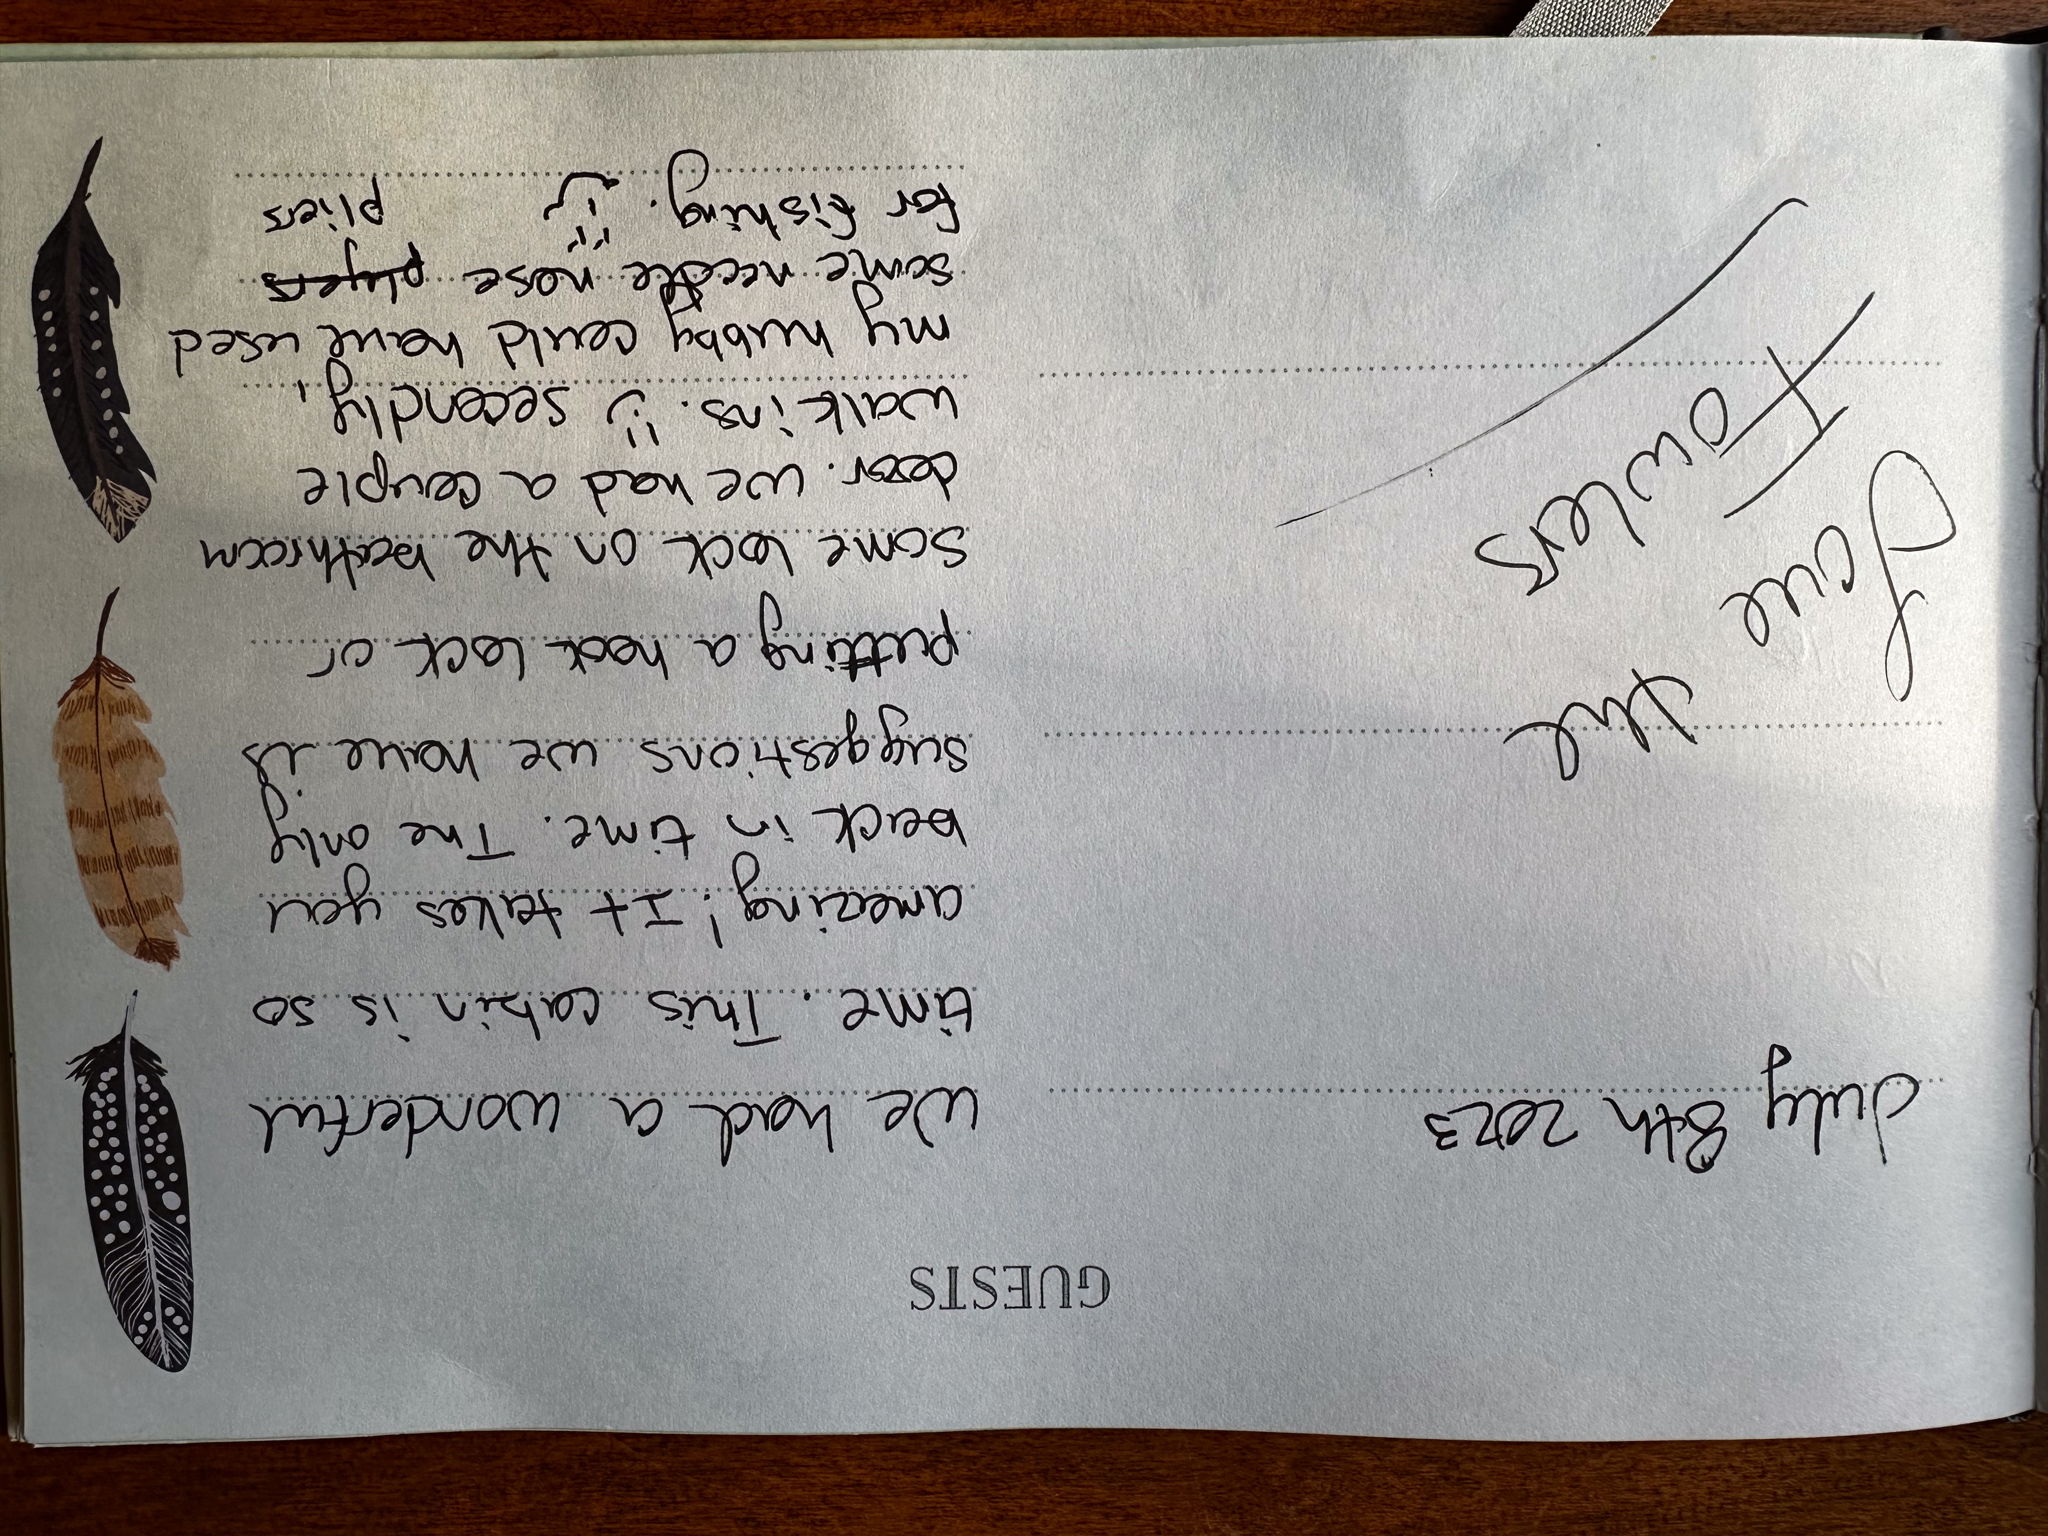 GUESTS
July 8th 2023
Love
the
Fowlers
We had a wonderful
time. This cabin is so
amazing! It takes you
back in time. The only
suggestions we have is
putting a hook lock or
some lock on the bathroom
door. We had a couple
walk ins. :) Secondly,
my hubby could have used
some needle nose plyers
for fishing. :) pliers